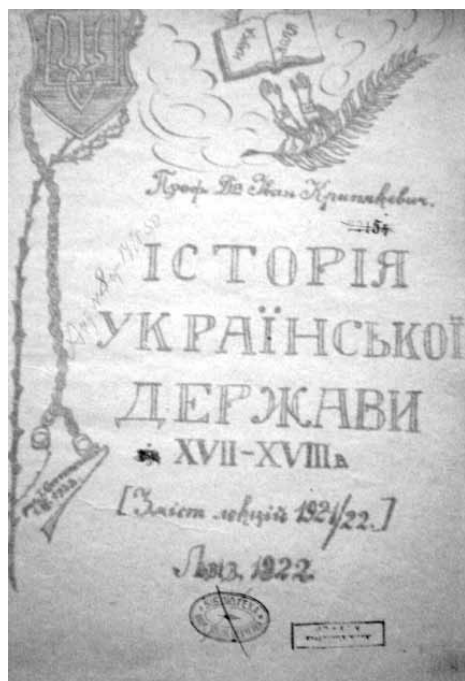 Проф. Др. Іван Крипякевич.
154
ІСТОРІЯ
УКРАЇНСЬКОЇ
ДЕРЖАВИ
XVII–XVIII в
[Зміст лєкцій 1921/22.]
Львів, 1922.
БІБЛІОТЕКА